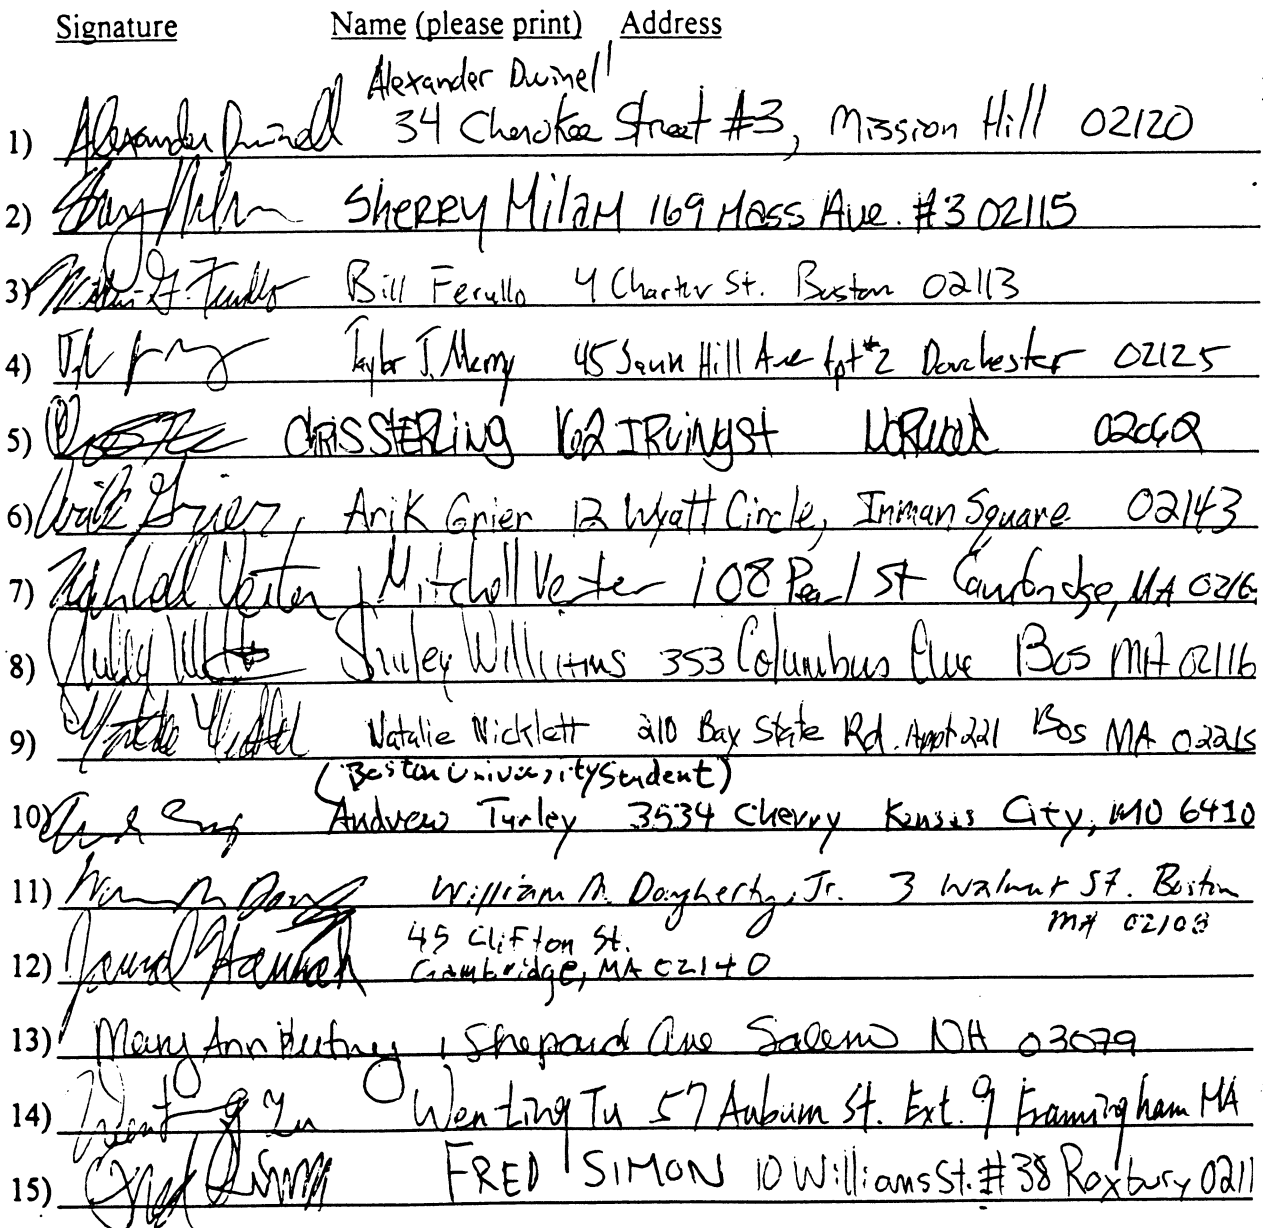 Signature Name (please print) Address
Alexander Dwinell
1) Alexander Dwinell 34 Cherokee Street #3, Mission Hill 02120
2) SHERRY MilAM 169 MASS Ave. #3 02115
3) Bill Ferullo 4 Charter St. Boston 02113
4) Taylor J. Merry 45 Hill Ave Apt #2 Dorchester 02125
5) CHRIS STERLiNg 162 IRViNg st NORWOOD
6) Arik Grier, Arik Grier 12 Wyatt Circle, Inman Square 02143
7) Mitchell Vester 108 Pearl St Cambridge, MA 0216
8) Shirley Williams 353 Columbus Ave Bos MA 02116
9) Natalie Nicklett 210 Bay State Rd. Appt 221 Bos MA 02215
(Boston University Student)
10) Andrew Turley 3534 Cherry Kansas City, MO 6410
11) William M. Daugherty, Jr. 3 Walnut St. Boston
MA 02108
45 Clifton St.
12) Jarred Hannah Cambridge, MA 02140
13) Mary Ann 1 Shepard Ave Salem NH 03079
14) Wenting Tu 57 Auburn St. Ext. 9 Framingham MA
15) Fred Simon FRED SIMON 10 Williams St. #38 Roxbury 0211